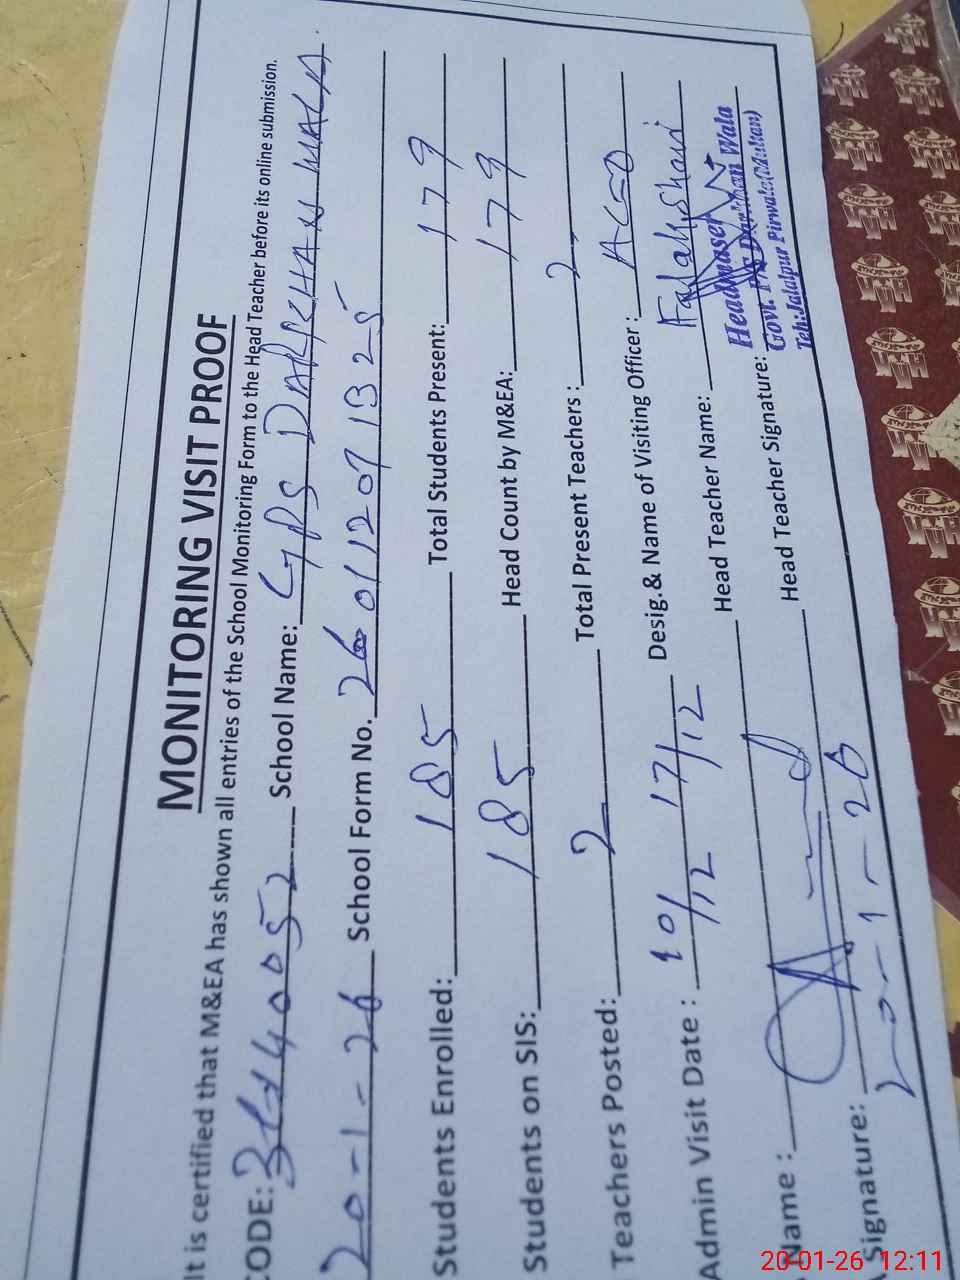 MONITORING VISIT PROOF
It is certified that M&EA has shown all entries of the School Monitoring Form to the Head Teacher before its online submission.
CODE: School Name: GPS DARKHAN WALA.
20-1-26 School Form No.
Students Enrolled: 185 Total Students Present: 179
Students on SIS: 185 Head Count by M&EA: 179
Teachers Posted: 2 Total Present Teachers: 2
Admin Visit Date: 10/12 17/12 Desig.& Name of Visiting Officer: AEO
Name: Head Teacher Name:
Signature: Head Teacher Signature:
20-1-26
Headmaser
Govt. P/S Darkhan Wala
Teh:Jalalpur Pirwala(Multan)
20-01-26 12:11